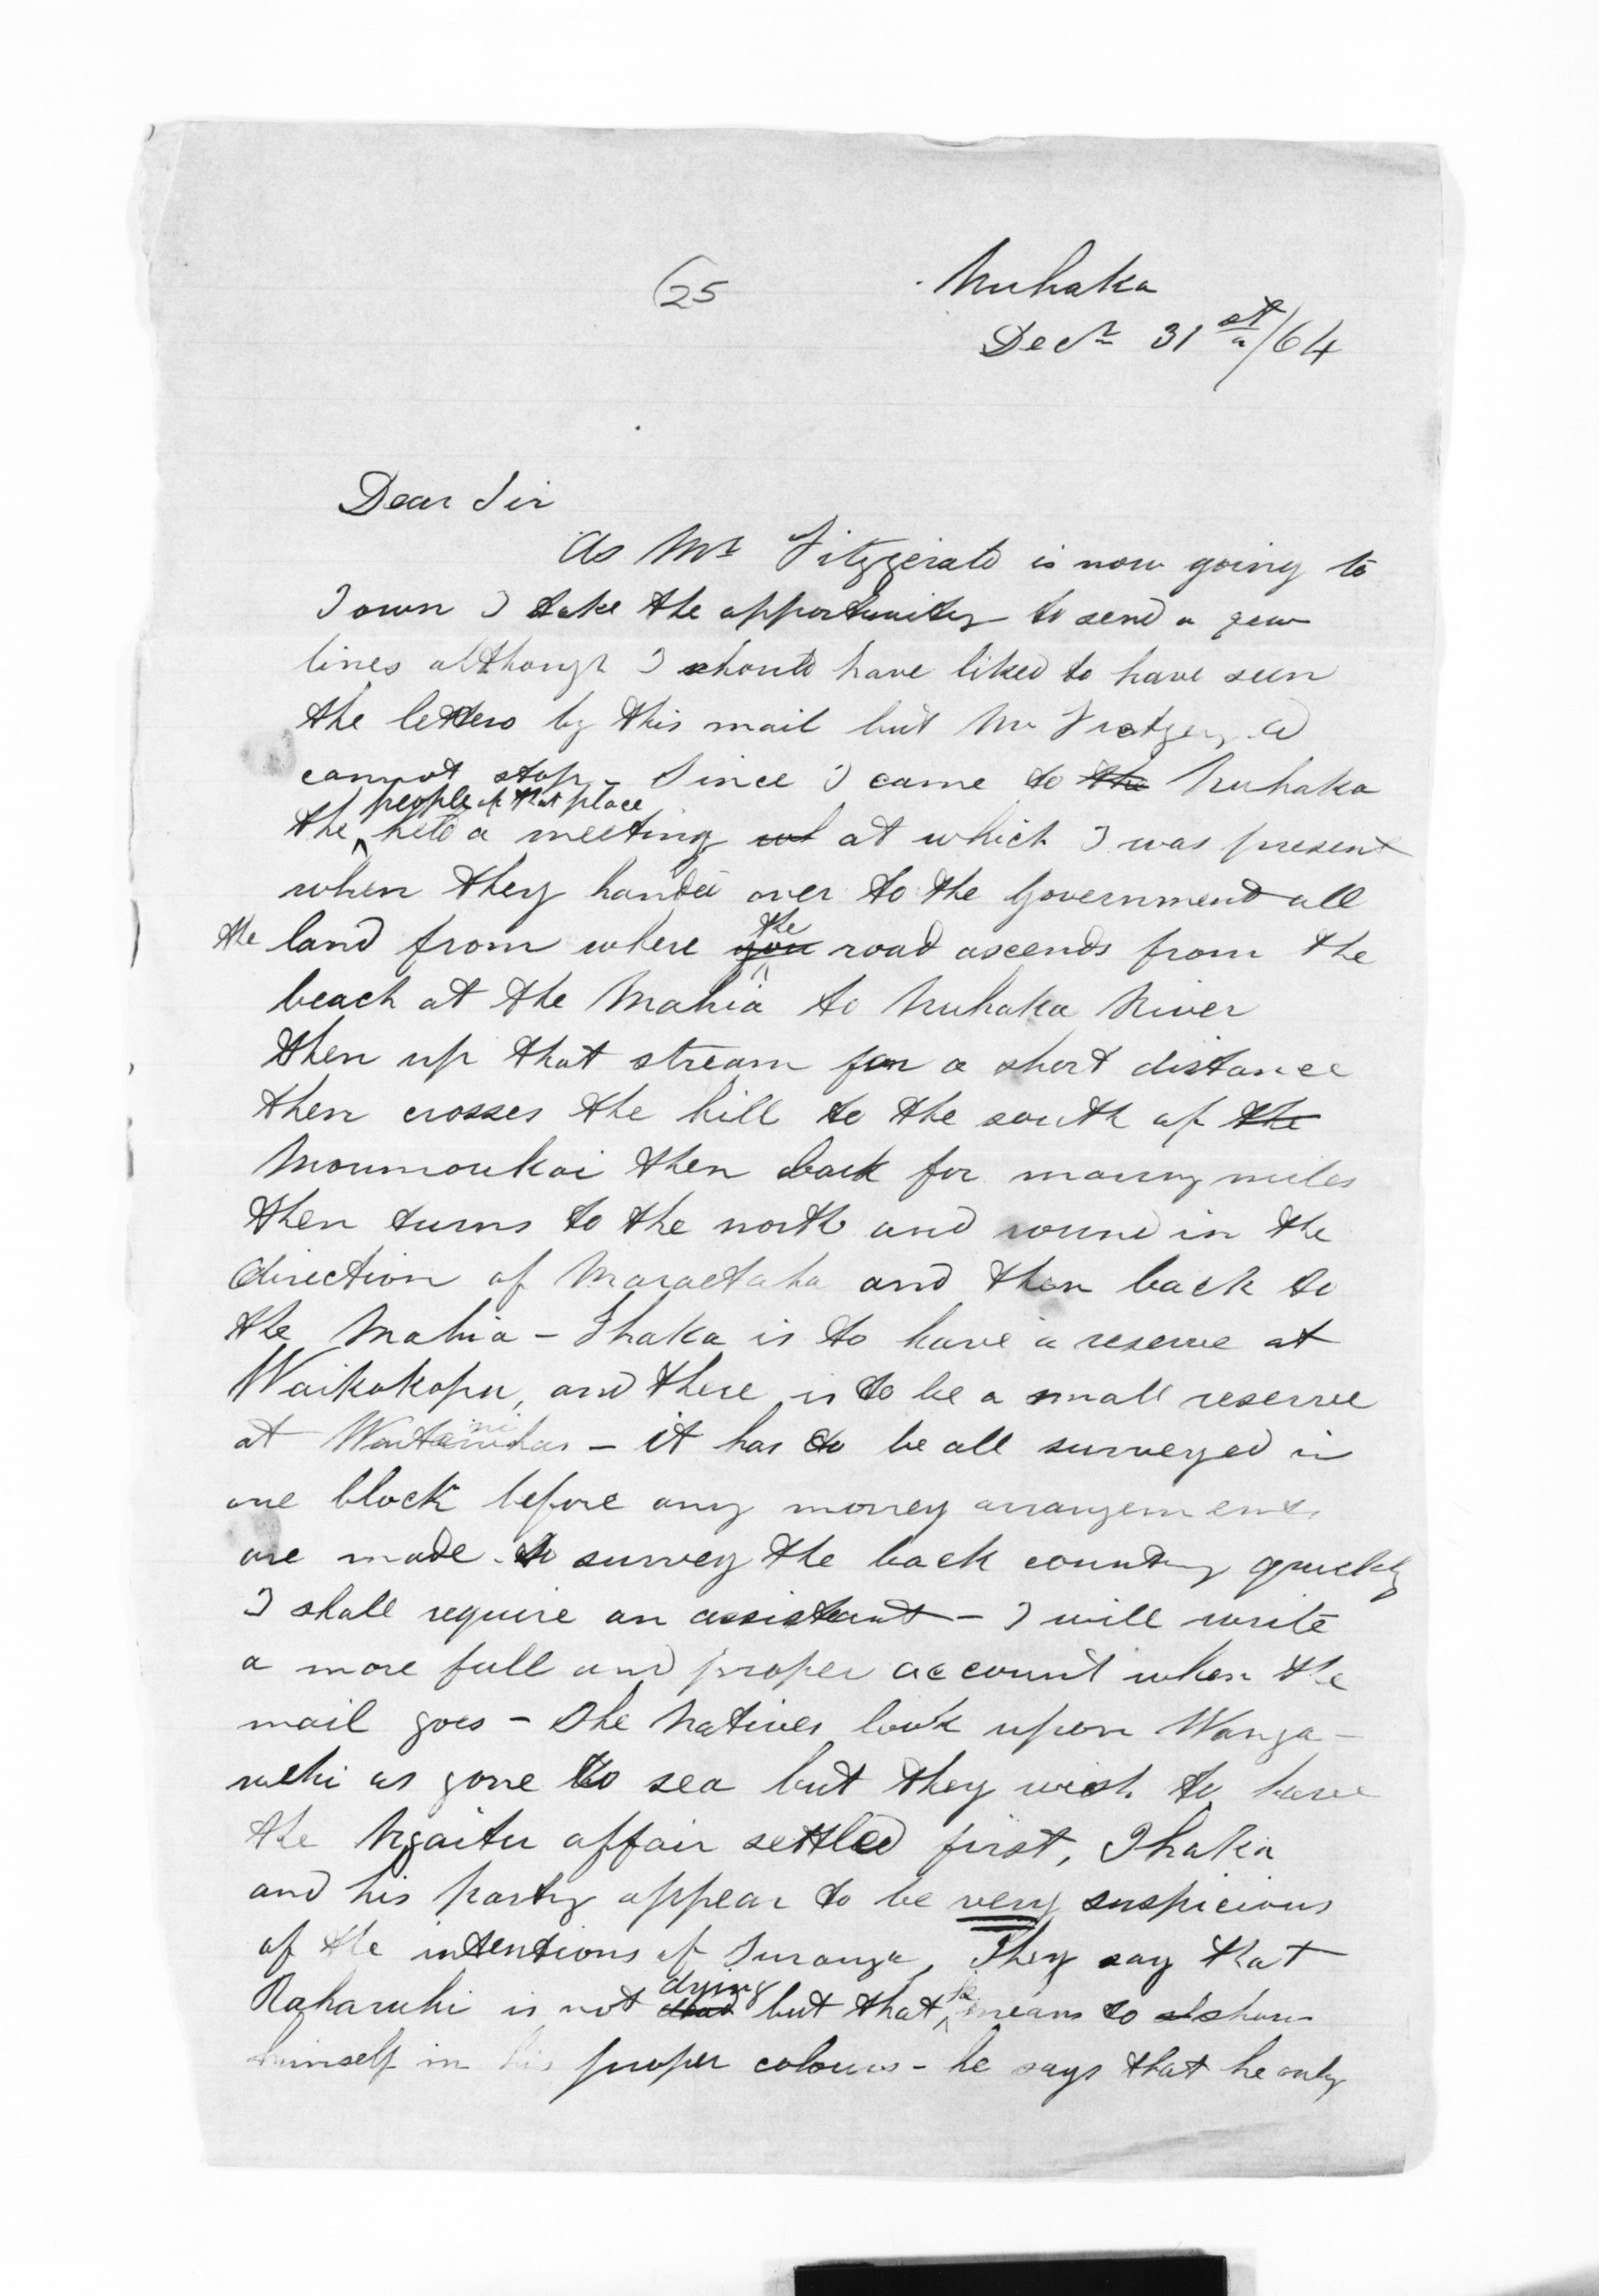 (25
Nuhaka
Decr 31st/64
Dear Sir
As Mr Fitzgerald is now going to
Town I take the opportunity to send a few
lines although I should have liked to have seen
the letters by this mail but Mr
cannot stop - Since I came to the Nuhaka
people of that place
the held a meeting at which I was present
when they handed over to the Government all
the
the land from where you road ascends from the
beach at the Mahia to Nuhaka River
then up that stream for a short distance
then crosses the hill to the south of the
Moumoukai then back for many miles
then turns to the north and round in the
direction of Maraetaha and then back to
the Mahia - Ihaka is to have a reserve at
Waikokopu, and there is to be a small reserve
at - it has to be all surveyed in
one block before any money arrangements
are made. To survey the back country quickly
I shall require an assistant - I will write
a more full and proper account when the
mail goes - The Natives look upon Wanga-
wehi as gone to sea but they wish to have
the Ngaitu affair settled first, Ihaka
and his party appear to be very suspicious
of the intentions of Turanga, They say that
dying he
Raharuhi is not dead but that means to show
himself in his proper colours - he says that he only